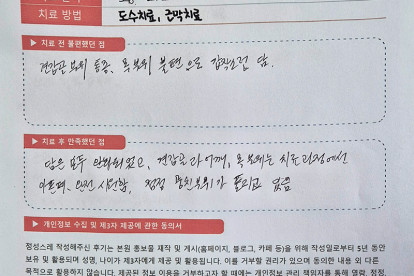 치료 방법 도수치료, 근막치료
▶ 치료 전 불편했던 점
견갑골 부위 통증, 목부위 불편으로 갑작스런 담.
▶ 치료 후 만족했던 점
담은 모두 완화되었고, 견갑골과 어깨, 목부위는 치료과정에서
아프며, 완전 시원함, 점점 뭉친부위가 풀리고 있음
▶ 개인정보 수집 및 제3자 제공에 관한 동의서
정성스레 작성해주신 후기는 본원 홍보물 제작 및 게시(홈페이지, 블로그, 카페 등)을 위해 작성일로부터 5년 동안
보유 및 활용되며 성명, 나이가 제3자에게 제공 및 활용됩니다. 이를 거부할 권리가 있으며 동의한 내용 외 다른
목적으로 활용하지 않습니다. 제공된 정보 이용을 거부하고자 할 때에는 개인정보 관리 책임자를 통해 열람, 정정,